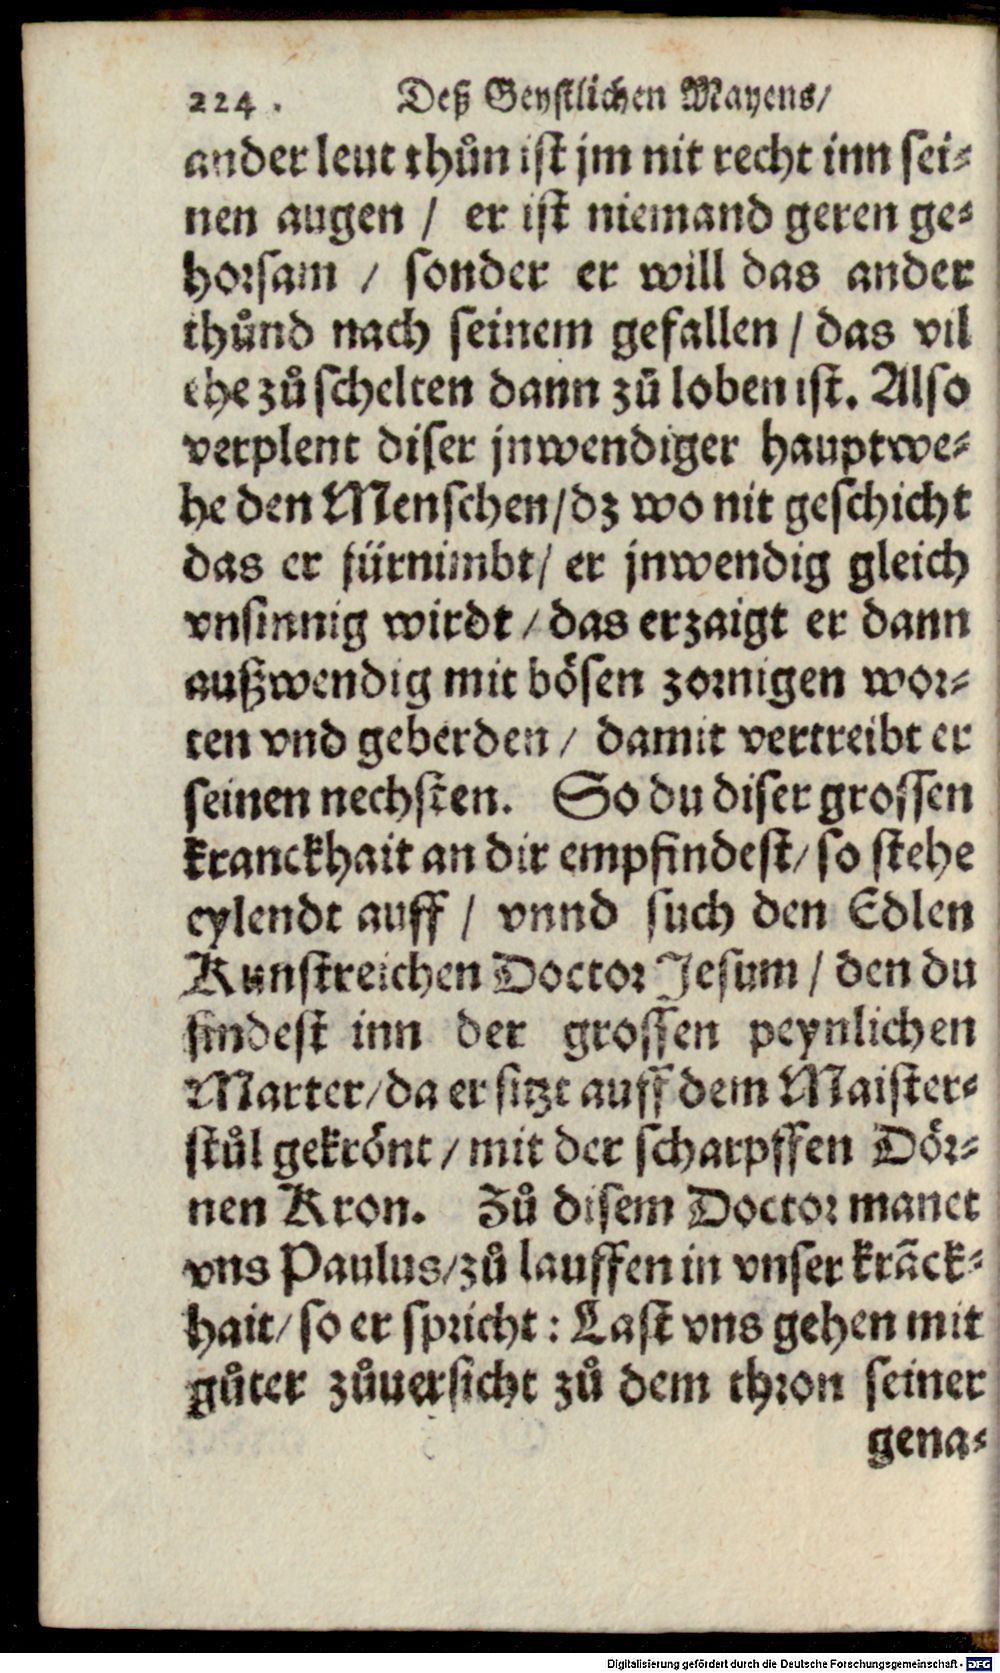 224. Deß Geystlichen Mayens/
ander leut thůn ist jm nit recht inn sei-
nen augen / er ist niemand geren ge-
horsam / sonder er will das ander
thůnd nach seinem gefallen / das vil
ehe zů schelten dann zů loben ist. Also
verplent diser jnwendiger hauptwe-
he den Menschen/dz wo nit geschicht
das er fürnimbt/ er jnwendig gleich
vnsinnig wirdt / das erzaigt er dann
außwendig mit bösen zornigen wor-
ten vnd geberden / damit vertreibt er
seinen nechsten. So du diser grossen
kranckhait an dir empfindest/ so stehe
eylendt auff / vnnd such den Edlen
Kunstreichen Doctor Jesum / den du
findest inn der grossen peynlichen
Marter/da er sitzt auff dem Maister-
stůl gekrönt / mit der scharpffen Dör-
nen Kron. Zů disem Doctor manet
vns Paulus/zů lauffen in vnser krãck-
hait/ so er spricht: Last vns gehen mit
gůter zůuersicht zů dem thron seiner
gena-
Digitalisierung gefördert durch die Deutsche Forschungsgemeinschaft - DFG